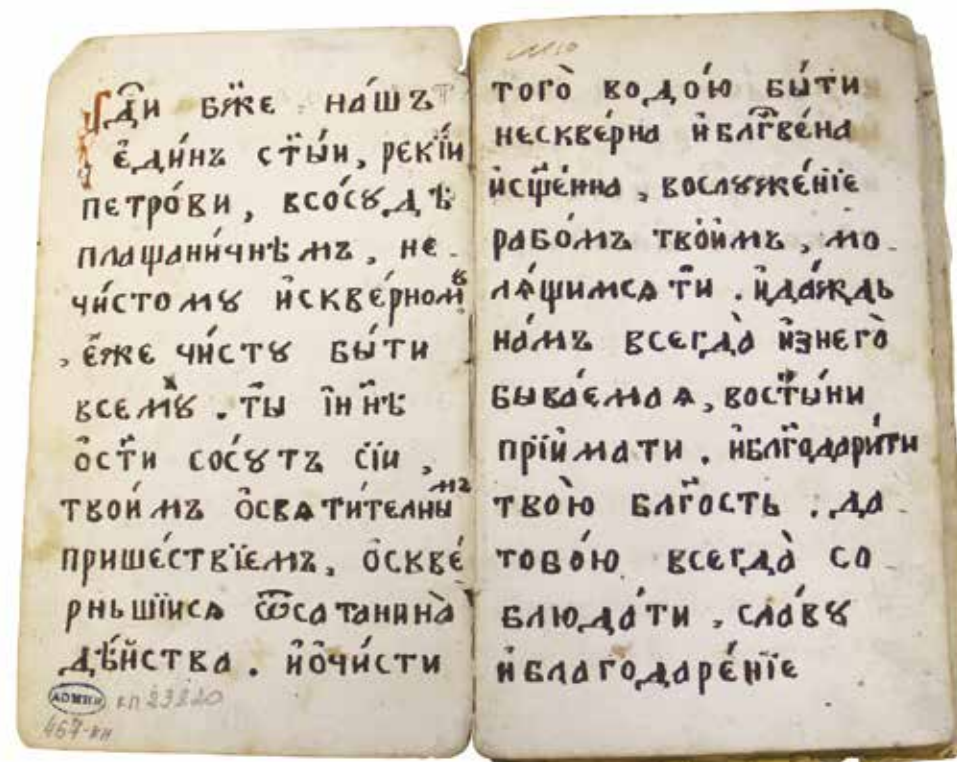 Гд҇и бж҃е на́шъ
є҆ди́нъ ст҃ы́и, рекі́и
петро́ви, всосꙋ́дѣ
плащани́чнѣмъ, не
чи́стомꙋ и҆скве́рномꙋ
, є҆́же чи́стꙋ бы́ти
всемꙋ̀. ты̀ і҆нн҃ѣ
ѻ҆ст҃и сосꙋ́тъ сі́и,
твои́мъ ѻ҆свѧти́телнымъ
прише́ствїемъ, ѻ҆скве́
рньшїисѧ ѿсатанина̀
дѣ́йства. и҆ѻ҆чи́сти
АОМИИ кп 23220
467-кн
того̀ водо́ю бы́ти
нескве́рна и҆блг҇ве́на
и҆сщ҃е́нна, вослꙋже́нїе
рабо́мъ твои҆́мъ, мо
лѧ́щимсѧ ти̑. и҆да́ждь
на́мъ всегда̀ и҆знего̀
быва́емаѧ, вост҃ы́ни
прїи́мати. и҆блг҇одари́ти
твою̀ бл҃гость. да
тобо́ю всегда̀ со
блюда́ти, сла́вꙋ
и҆благодаре́нїе